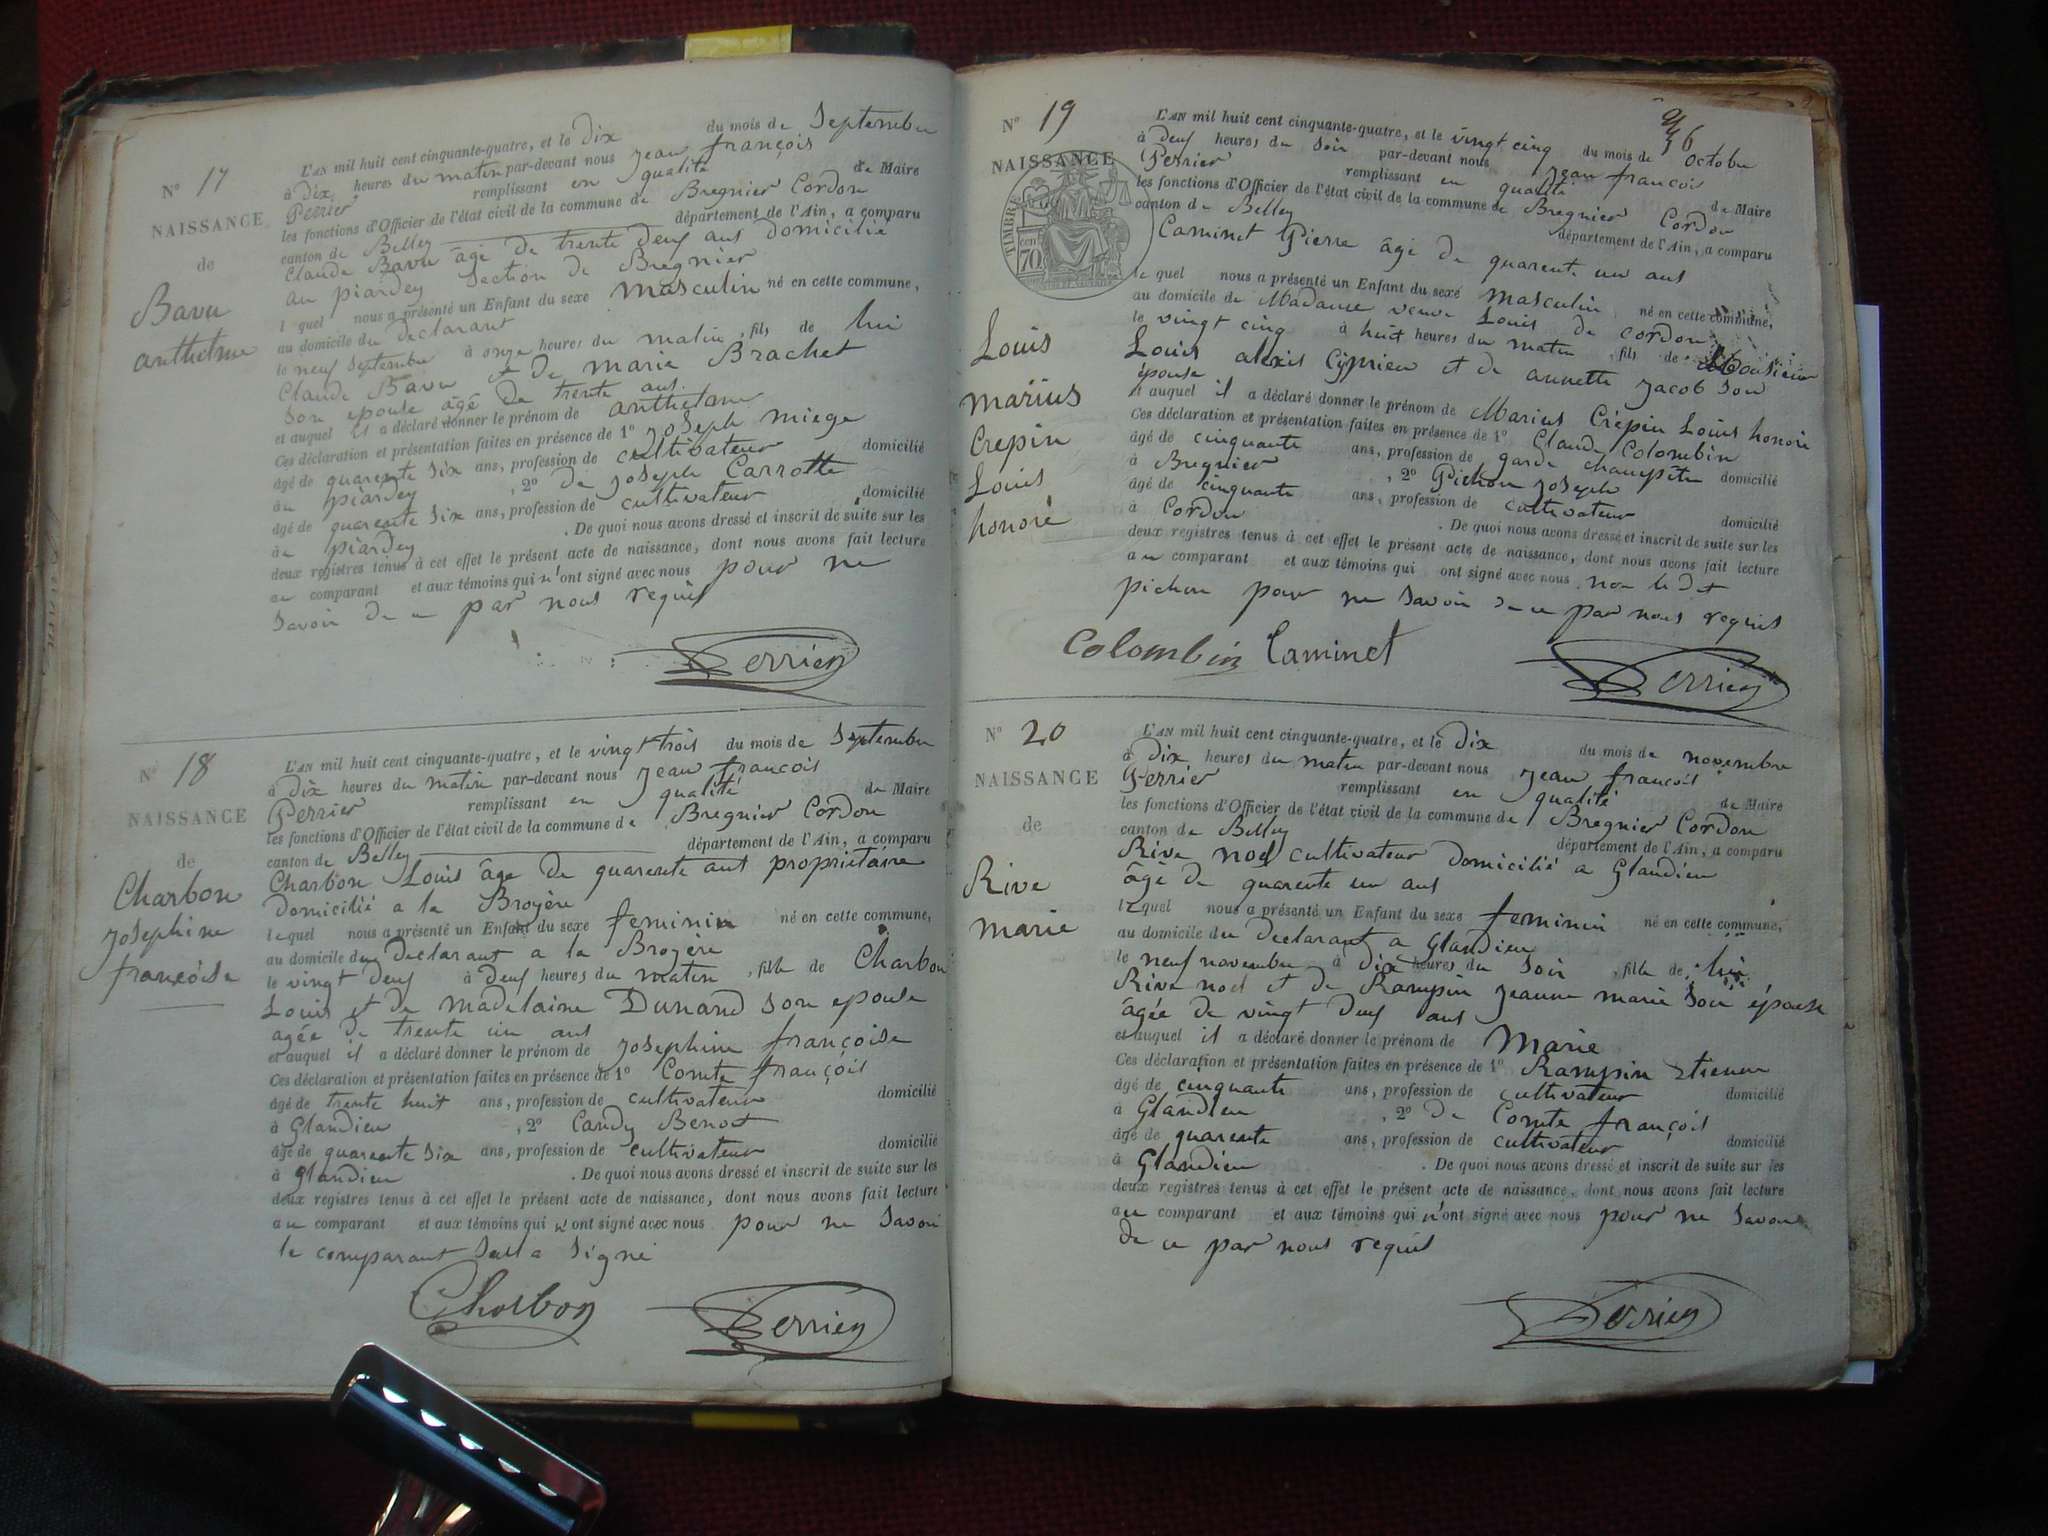 N° 17
NAISSANCE
de
Bavu
anthelme
L'AN mil huit cent cinquante-quatre, et le Dix du mois de Septembre
à Dix heures du matin par-devant nous Jean françois
Perrier remplissant en qualité de Maire
les fonctions d'Officier de l'état civil de la commune de Bregnier Cordon
canton de Belley département de l'Ain, a comparu
Claude Bavu âgé de trente deux ans domicilié
au piardey Section de Bregnier
lequel nous a présenté un Enfant du sexe masculin né en cette commune,
au domicile du declarant
le neuf Septembre à onze heures du matin, fils de lui
Claude Bavu et de marie Brachet
Son epouse âgé de trente ans
et auquel il a déclaré donner le prénom de anthelme
Ces déclaration et présentation faites en présence de 1° Joseph miege
âgé de quarente Six ans, profession de cultivateur domicilié
au piardey , 2° de Joseph Carrotte
âgé de quarente Six ans, profession de cultivateur domicilié
au piardey . De quoi nous avons dressé et inscrit de suite sur les
deux registres tenus à cet effet le présent acte de naissance, dont nous avons fait lecture
au comparant et aux témoins qui n'ont signé avec nous pour ne
Savoir de ce par nous requis
Perrier
N° 18
NAISSANCE
de
Charbon
Josephine
françoise
L'AN mil huit cent cinquante-quatre, et le vingt trois du mois de Septembre
à Dix heures du matin par-devant nous Jean francois
Perrier remplissant en qualité de Maire
les fonctions d'Officier de l'état civil de la commune de Bregnier Cordon
canton de Belley département de l'Ain, a comparu
Charbon Louis âge de quarente ans propriétaire
domicilié a la Broyère
lequel nous a présenté un Enfant du sexe feminin né en cette commune,
au domicile du Declarant a la Broyère
le vingt deux à deux heures du matin, fille de Charbon
Louis et de madelaine Dunand Son epouse
agée de trente un ans
et auquel il a déclaré donner le prénom de Josephine françoise
Ces déclaration et présentation faites en présence de 1° Comte françois
âgé de trente huit ans, profession de cultivateur domicilié
à Glandieu , 2° Candy Benoit
âgé de quarente Six ans, profession de cultivateur domicilié
à Glandieu . De quoi nous avons dressé et inscrit de suite sur les
deux registres tenus à cet effet le présent acte de naissance, dont nous avons fait lecture
au comparant et aux témoins qui n'ont signé avec nous pour ne Savoir
le comparant Seul a Signé
Charbon Perrier
N° 19
NAISSANCE
TIMBRE
70
Louis
marius
Crepin
Louis
honoré
6
L'AN mil huit cent cinquante-quatre, et le vingt cinq du mois de octobre
à deux heures du Soir par-devant nous Jean francois
Perrier remplissant en qualité de Maire
les fonctions d'Officier de l'état civil de la commune de Bregnier Cordon
canton de Belley département de l'Ain, a comparu
Caminet Pierre âgé de quarente un ans
lequel nous a présenté un Enfant du sexe masculin né en cette commune,
au domicile de Madame veuve Louis de cordon
le vingt cinq à huit heures du matin, fils de Monsieur
Louis alexis Cyprien et de annette Jacob Son
épouse
et auquel il a déclaré donner le prénom de Marius Crépin Louis honoré
Ces déclaration et présentation faites en présence de 1° Claude Colombin
âgé de cinquante ans, profession de garde champêtre domicilié
à Bregnier , 2° Pichon Joseph
âgé de cinquante ans, profession de cultivateur domicilié
à Cordon . De quoi nous avons dressé et inscrit de suite sur les
deux registres tenus à cet effet le présent acte de naissance, dont nous avons fait lecture
au comparant et aux témoins qui ont signé avec nous non le dit
pichon pour ne Savoir de ce par nous requis
Colombin Caminet Perrier
N° 20
NAISSANCE
de
Rive
marie
L'AN mil huit cent cinquante-quatre, et le Dix du mois de novembre
à Dix heures du matin par-devant nous Jean françois
Perrier remplissant en qualité de Maire
les fonctions d'Officier de l'état civil de la commune de Bregnier Cordon
canton de Belley département de l'Ain, a comparu
Rive noel cultivateur domicilié a Glandieu
âgé de quarente un ans
lequel nous a présenté un Enfant du sexe feminin né en cette commune,
au domicile du declarant a Glandieu
le neuf novembre à dix heures du Soir, fille de lui
Rive noel et de Rampin Jeanne marie Son épouse
âgée de vingt deux ans
et auquel il a déclaré donner le prénom de Marie
Ces déclaration et présentation faites en présence de 1° Rampin Etienne
âgé de cinquante ans, profession de cultivateur domicilié
à Glandieu , 2° de Comte françois
âgé de quarente ans, profession de cultivateur domicilié
à Glandieu . De quoi nous avons dressé et inscrit de suite sur les
deux registres tenus à cet effet le présent acte de naissance, dont nous avons fait lecture
au comparant et aux témoins qui n'ont signé avec nous pour ne Savoir
de ce par nous requis
Perrier